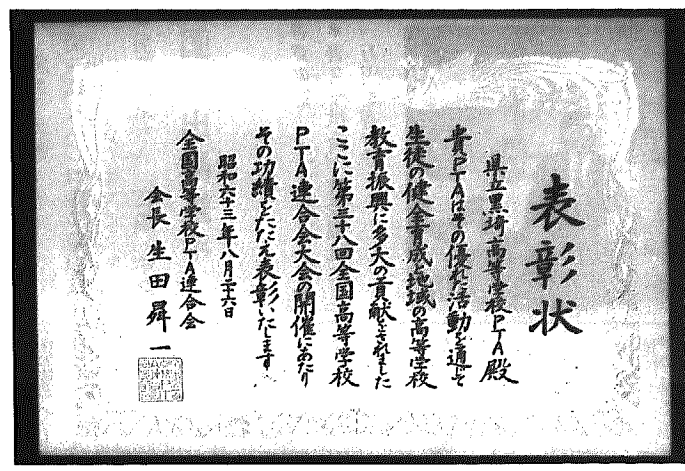 表彰状
県立黒埼高等学校PTA殿
貴PTAはその優れた活動を通じて
生徒の健全育成と地域の高等学校
教育振興に多大の貢献をされました
ここに第三十八回全国高等学校
PTA連合会大会の開催にあたり
その功績をたたえ表彰いたします
昭和六十三年八月二十六日
全国高等学校PTA連合会
会長 生田舜一